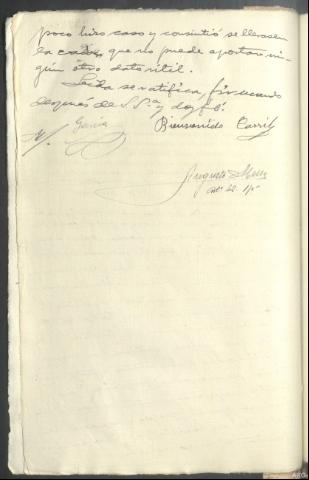 poco hizo caso y consintió se llevasen
la cabra, que no puede aportar nin-
gún otro dato útil.
Leída se ratifica, firmando
después de S. Sª y doy fé.
M. García Bienvenido Carril
Augusto